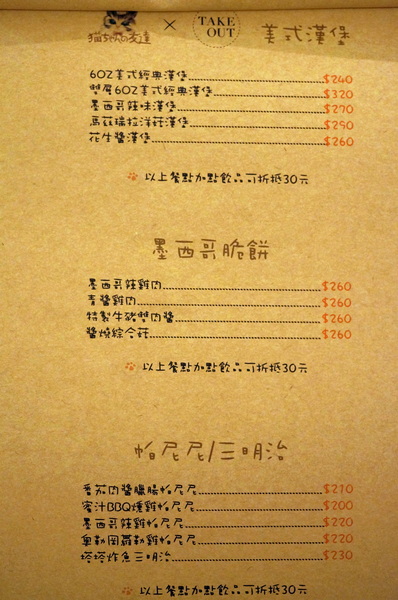 猫ちゃんの友達 × TAKE OUT 美式漢堡
6OZ美式經典漢堡 $240
雙層6OZ美式經典漢堡 $320
墨西哥辣味漢堡 $270
馬茲瑞拉洋菇漢堡 $290
花生醬漢堡 $260
以上餐點加點飲品可折抵30元
墨西哥脆餅
墨西哥辣雞肉 $260
青醬雞肉 $260
特製牛豬雙肉醬 $260
醬燒綜合菇 $260
以上餐點加點飲品可折抵30元
帕尼尼/三明治
番茄肉醬臘腸帕尼尼 $210
蜜汁BBQ燻雞帕尼尼 $200
墨西哥辣雞帕尼尼 $220
奧勒岡羅勒雞帕尼尼 $220
塔塔炸魚三明治 $230
以上餐點加點飲品可折抵30元